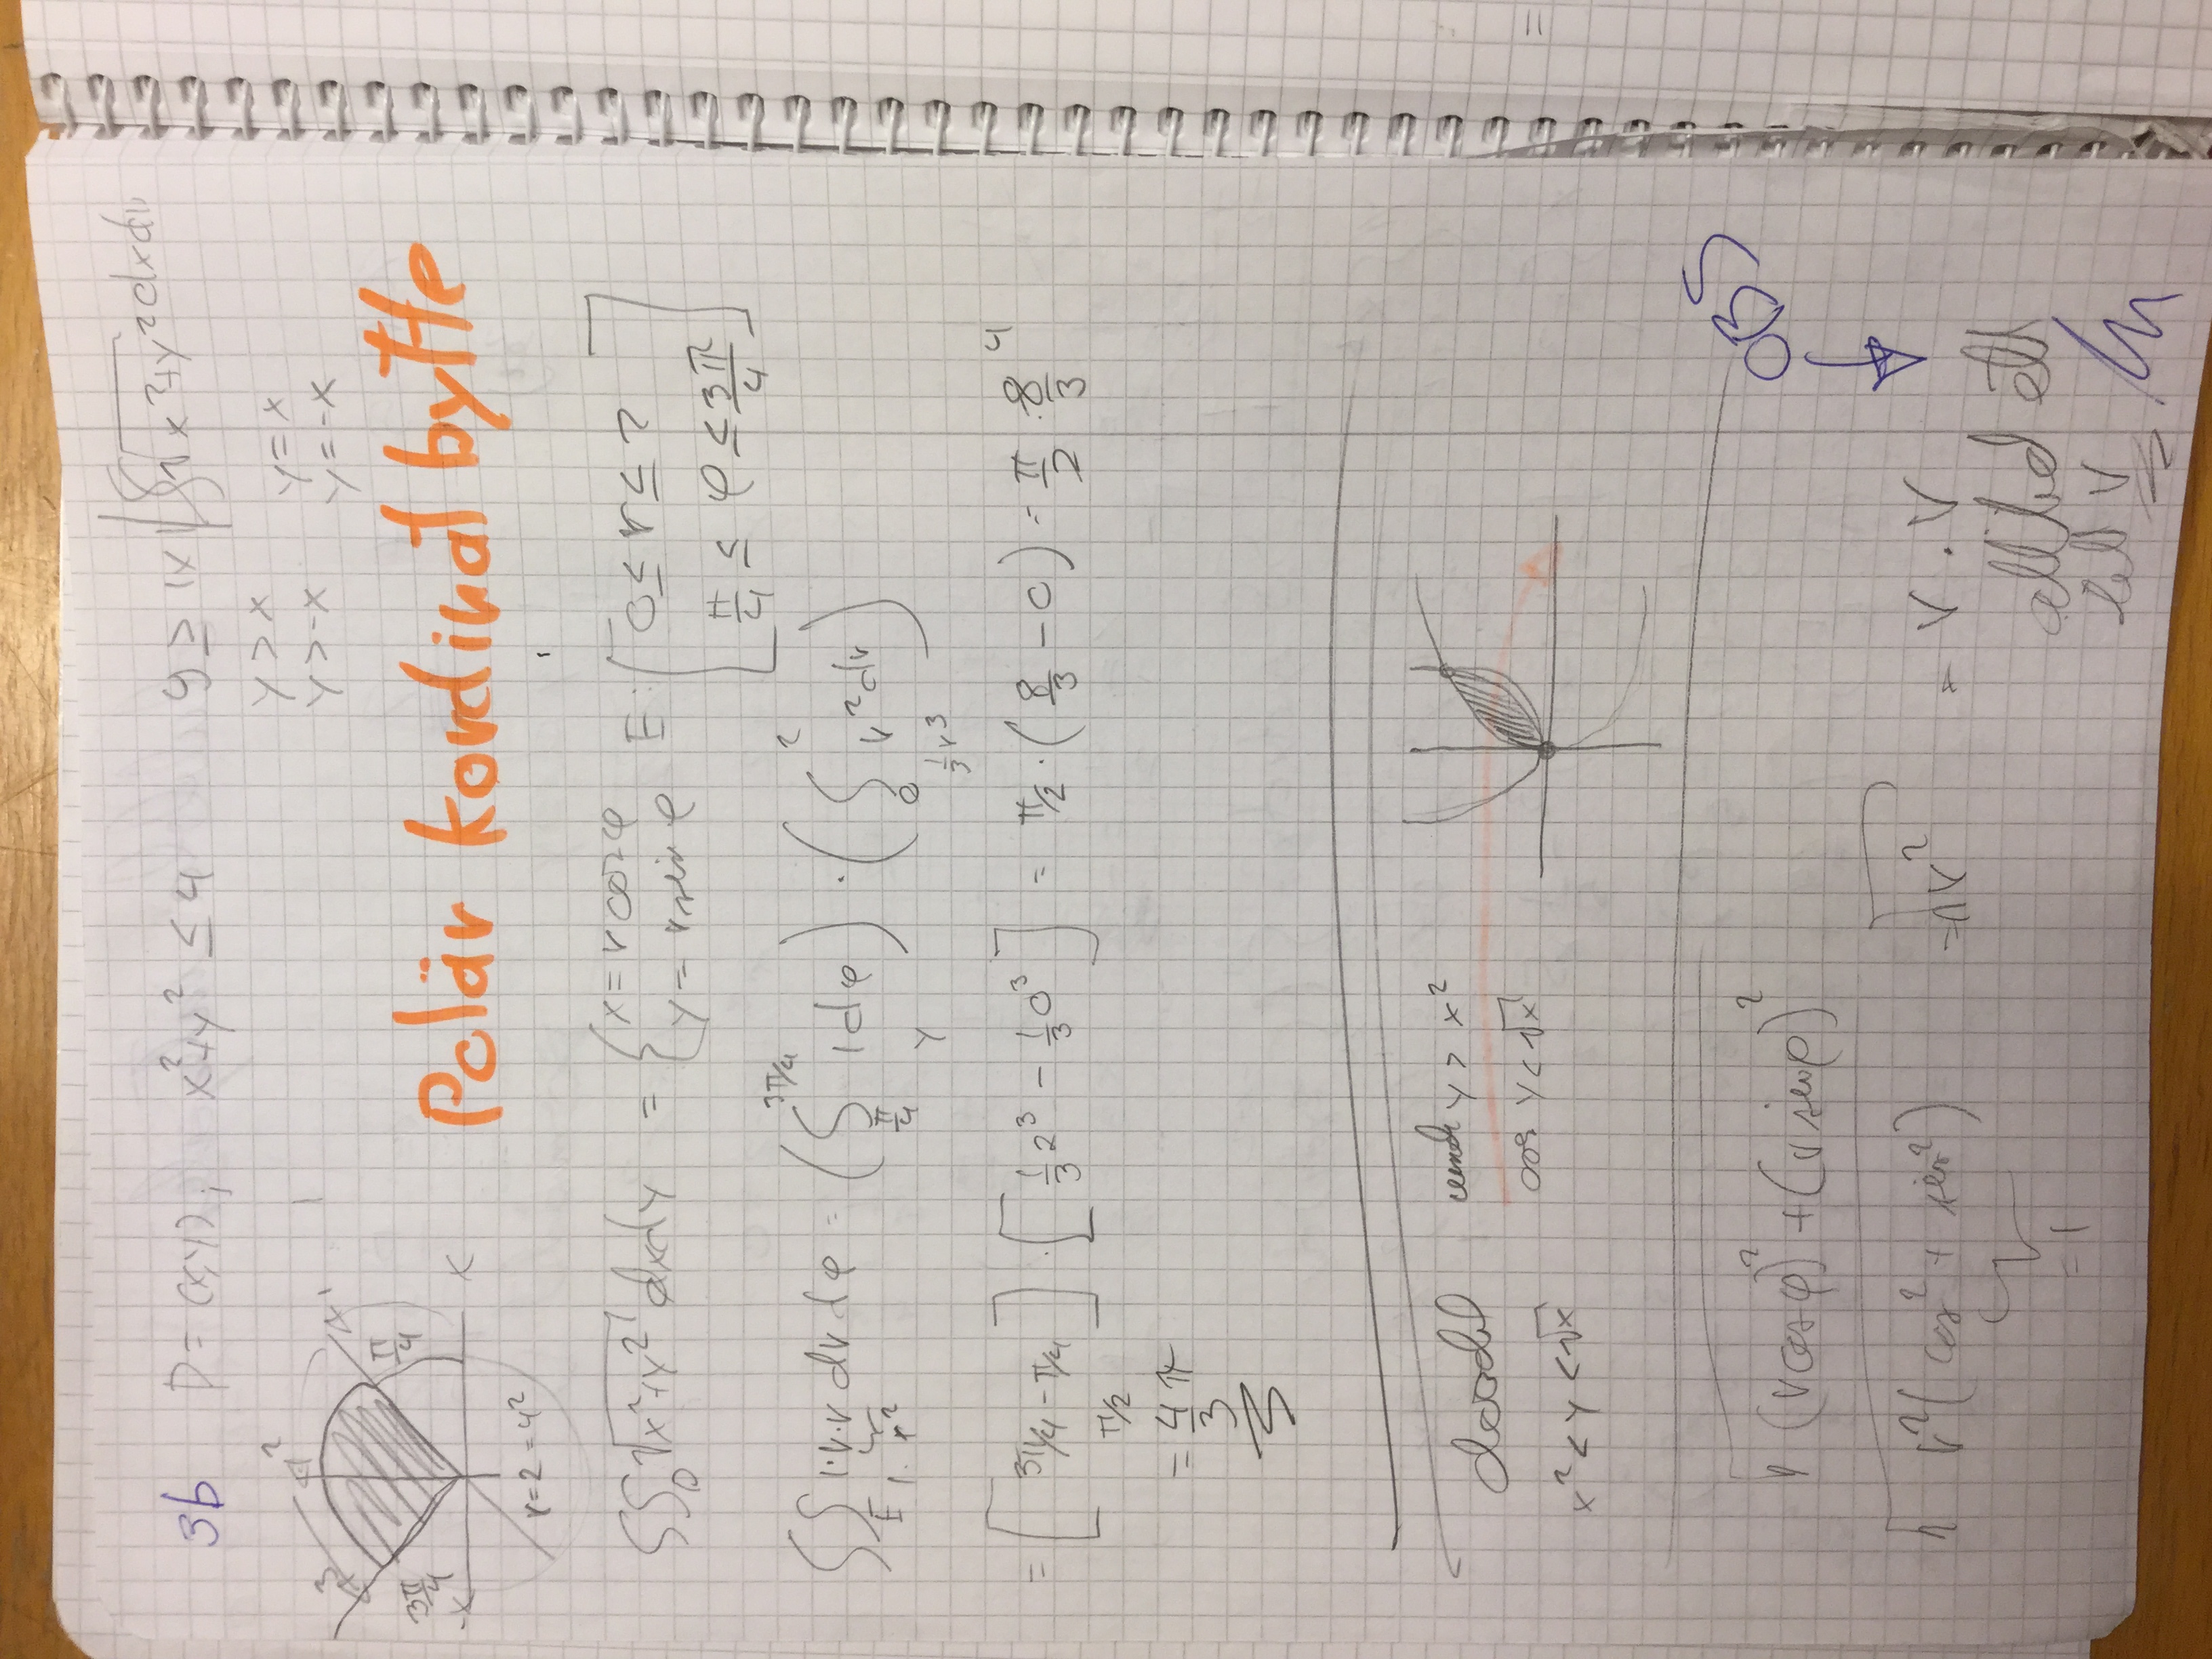 3b D = (x,y); x²+y² ≤ 4 y ≥ |x| ∬√x²+y² dxdy
y > x y = x
y > -x y = -x
2
3 1
3π/4 π/4
-x x
r=2=4²
Polär kordinat bytte
∬D √x²+y² dxdy = { x = r cos φ y = r sin φ E: [ 0 ≤ r ≤ 2
π/4 ≤ φ ≤ 3π/4 ]
∬E 1·r·r dr dφ = ( ∫π/4^3π/4 1 dφ ) · ( ∫0^2 r² dr )
1· r² y 1/3 r³
= [ 3π/4 - π/4 ] · [ 1/3 2³ - 1/3 0³ ] = π/2 · ( 8/3 - 0 ) = π/2 · 8/3 4
π/2
= 4/3 π
y > x²
x² < y < √x y < √x
OBS
√(r cos φ)² + (r sin φ)²
√r²( cos² + sin² ) = √r² = r · r
= 1
alltid ett
r